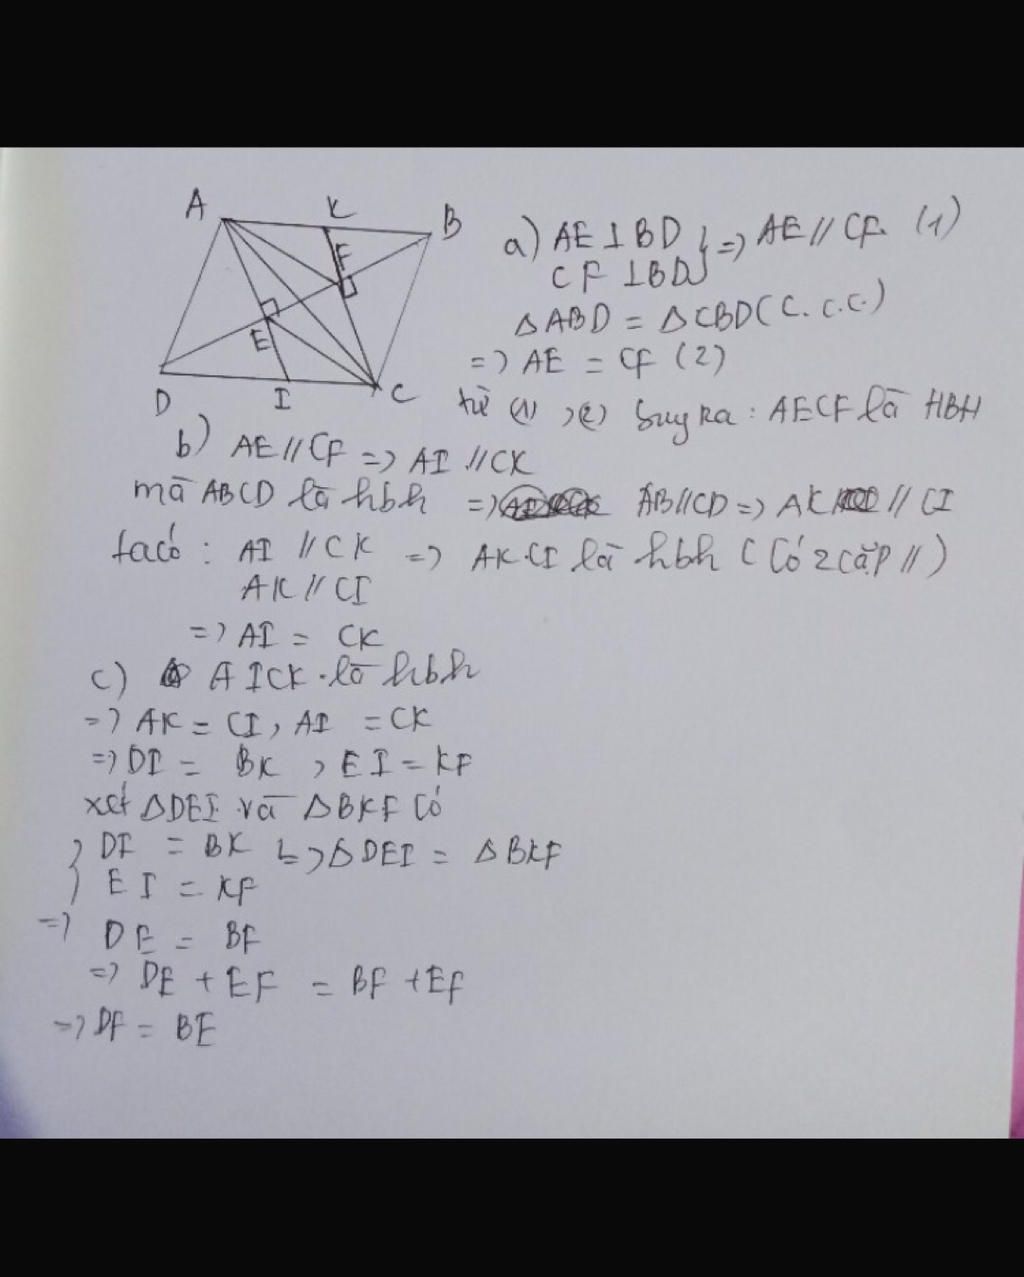 A K B
F
E
D I C
a) AE ⊥ BD } => AE // CF (1)
CF ⊥ BD
ΔABD = ΔCBD (c.c.c)
=> AE = CF (2)
từ (1), (2) suy ra : AECF là HBH
b) AE // CF => AI // CK
mà ABCD là hbh => AB // CD => AK // CI
ta có : AI // CK => AKCI là hbh (có 2 cặp //)
AK // CI
=> AI = CK
c) AICK là hbh
=> AK = CI, AI = CK
=> DI = BK, EI = KF
xét ΔDEI và ΔBKF có
DI = BK => ΔDEI = ΔBKF
EI = KF
=> DE = BF
=> DE + EF = BF + EF
=> DF = BE